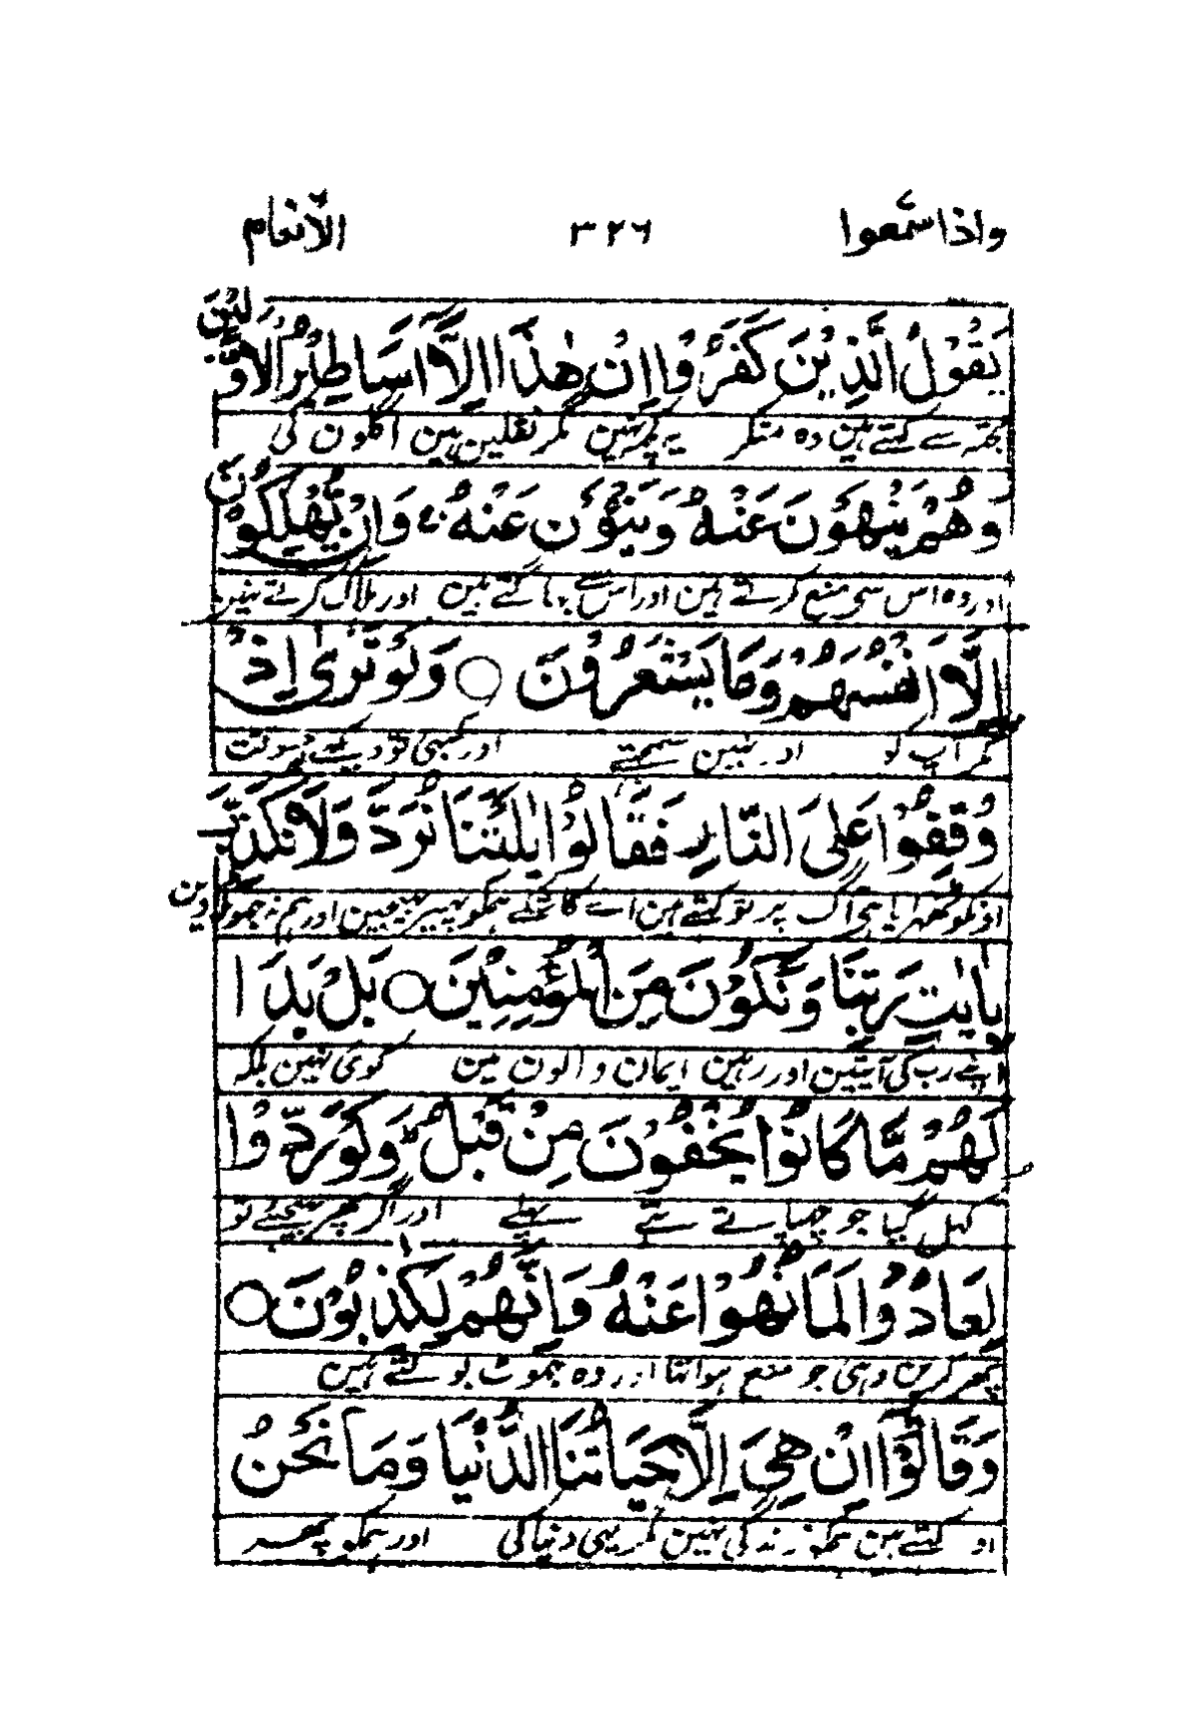 واذا سمعوا ۳۲۶ الانعام
يَقُوْلُ الَّذِيْنَ كَفَرُوْا اِنْ هٰذَا اِلَّا اَسَاطِيْرُ الْاَوَّلِيْنَ
تجھہ سے کہتے ہین وہ منکر یہ کچھہ نہین مگر نقلین ہین اگلون کی
وَهُمْ يَنْهَوْنَ عَنْهُ وَيَنْـَٔوْنَ عَنْهُ ۚ وَاِنْ يُّهْلِكُوْنَ
اور وہ اس سی منع کرتے ہین اور اس سے بھاگتے ہین اور ہلاک کرتے نہین
اِلَّا اَنْفُسَهُمْ وَمَا يَشْعُرُوْنَ ○ وَلَوْ تَرٰى اِذْ
مگر آپ کو اور نہین سمجھتے اور کبھی تو دیکھے جسوقت
وُقِفُوْا عَلَى النَّارِ فَقَالُوْا يٰلَيْتَنَا نُرَدُّ وَلَا نُكَذِّبَ
انکو ٹھہرایا ہی آگ پر تو کہتے ہین اے کاشکے ہمکو پھیر بھیجین اور ہم نہ جھوٹلاوین
بِاٰيٰتِ رَبِّنَا وَنَكُوْنَ مِنَ الْمُؤْمِنِيْنَ ○ بَلْ بَدَا
اپنے رب کی آیتین اور رہین ایمان والون مین کوی نہین بلکہ
لَهُمْ مَّا كَانُوْا يُخْفُوْنَ مِنْ قَبْلُ ؕ وَلَوْ رُدُّوْا
کہل گیا جو چھپاتے تھے پہلے اور اگر پھر بھیجئے تو
لَعَادُوْا لِمَا نُهُوْا عَنْهُ وَاِنَّهُمْ لَكٰذِبُوْنَ ○
پھر کرین وہی جو منع ہوا تھا اور وہ جھوٹ بولتے ہین
وَقَالُوْا اِنْ هِيَ اِلَّا حَيَاتُنَا الدُّنْيَا وَمَا نَحْنُ
او کہتے ہین ہمکو زندگی نہین مگر یہی دنیا کی اور ہمکو پھر